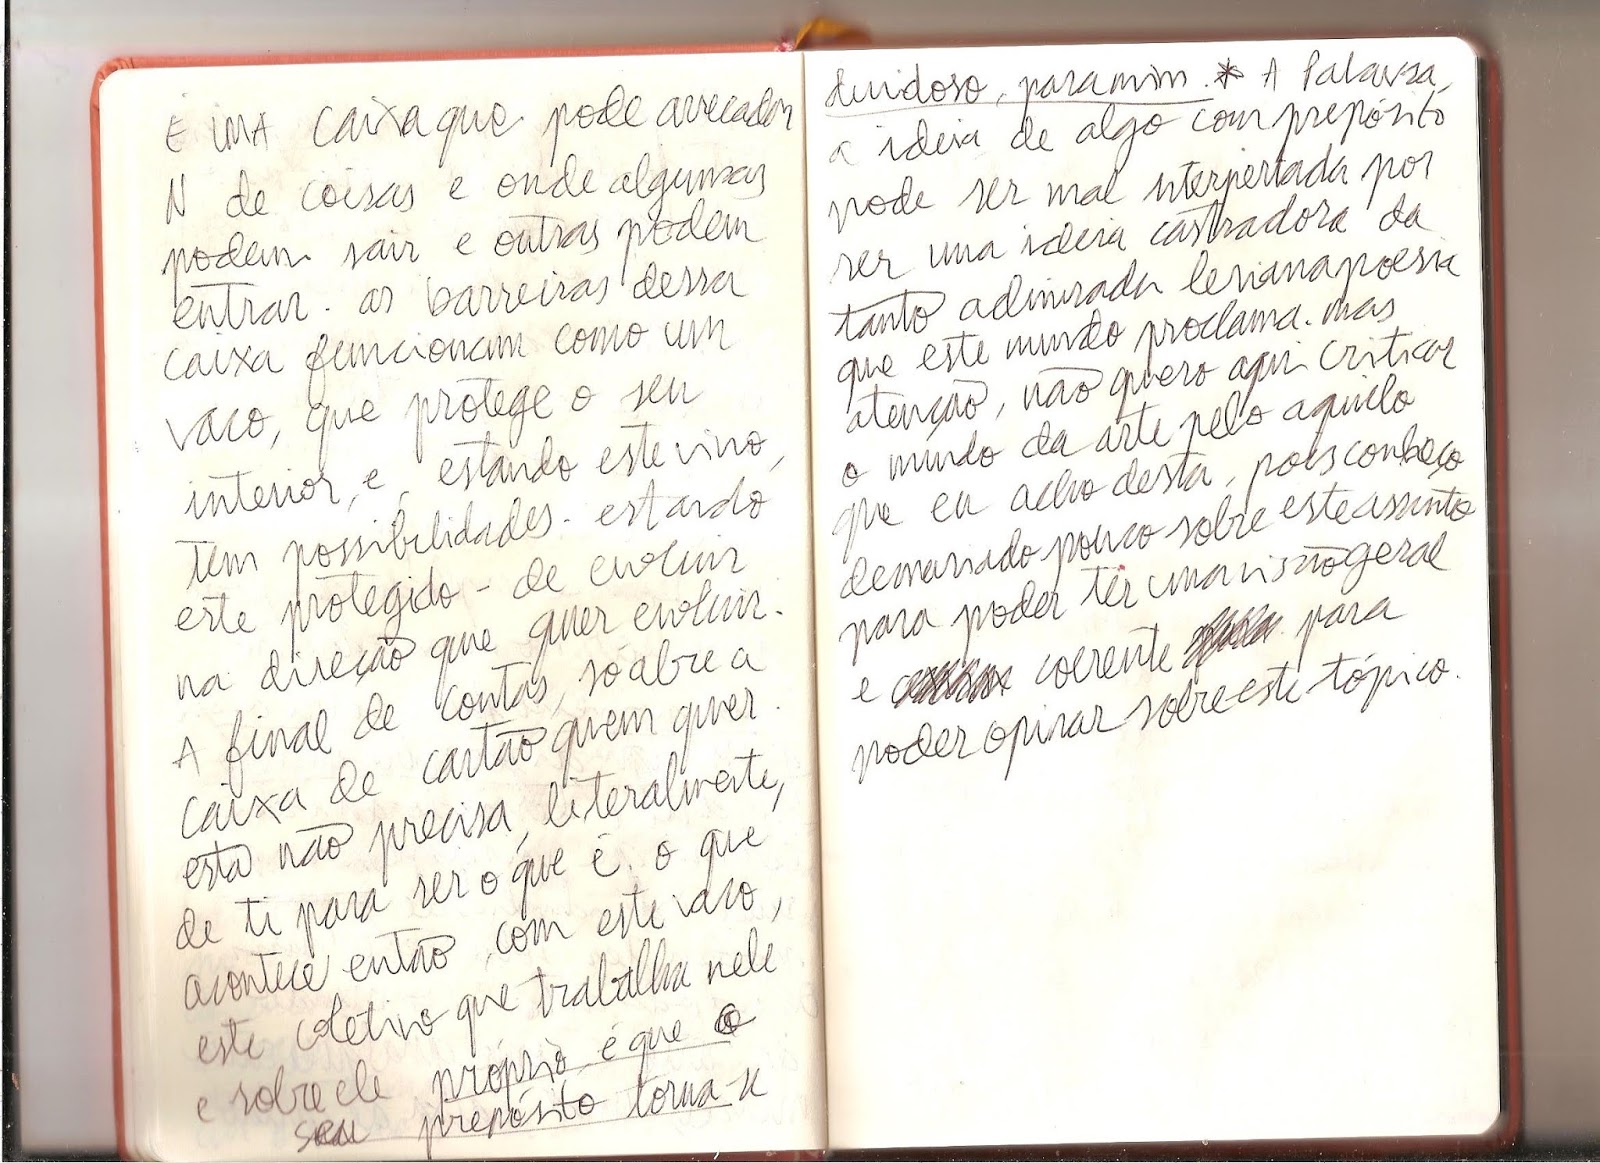 E UMA caixa que pode arrecadar
N de coisas e onde algumas
podem sair e outras podem
entrar. as barreiras dessa
caixa funcionam como um
vaso, que protege o seu
interior, e, estando este vivo,
tem possibilidades. estando
este protegido - de evoluir
na direção que quer evoluir.
A final de contas, só abre a
caixa de cartão quem quer.
esta não precisa, literalmente,
de ti para ser o que é. o que
acontece então, com este vaso,
este coletivo que trabalha nele
e sobre ele próprio é que o
seu prepósito torna-se
duvidoso, para mim. * A Palavra,
a ideia de algo com prepósito
pode ser mal interpertada por
ser uma ideia castradora da
tanto admirada leviana poesia
que este mundo proclama. mas
atenção, não quero aqui criticar
o mundo da arte pelo aquilo
que eu acho desta, pois conheço
demasiado pouco sobre este assunto
para poder ter uma visão geral
e coerente para
poder opinar sobre este tópico.